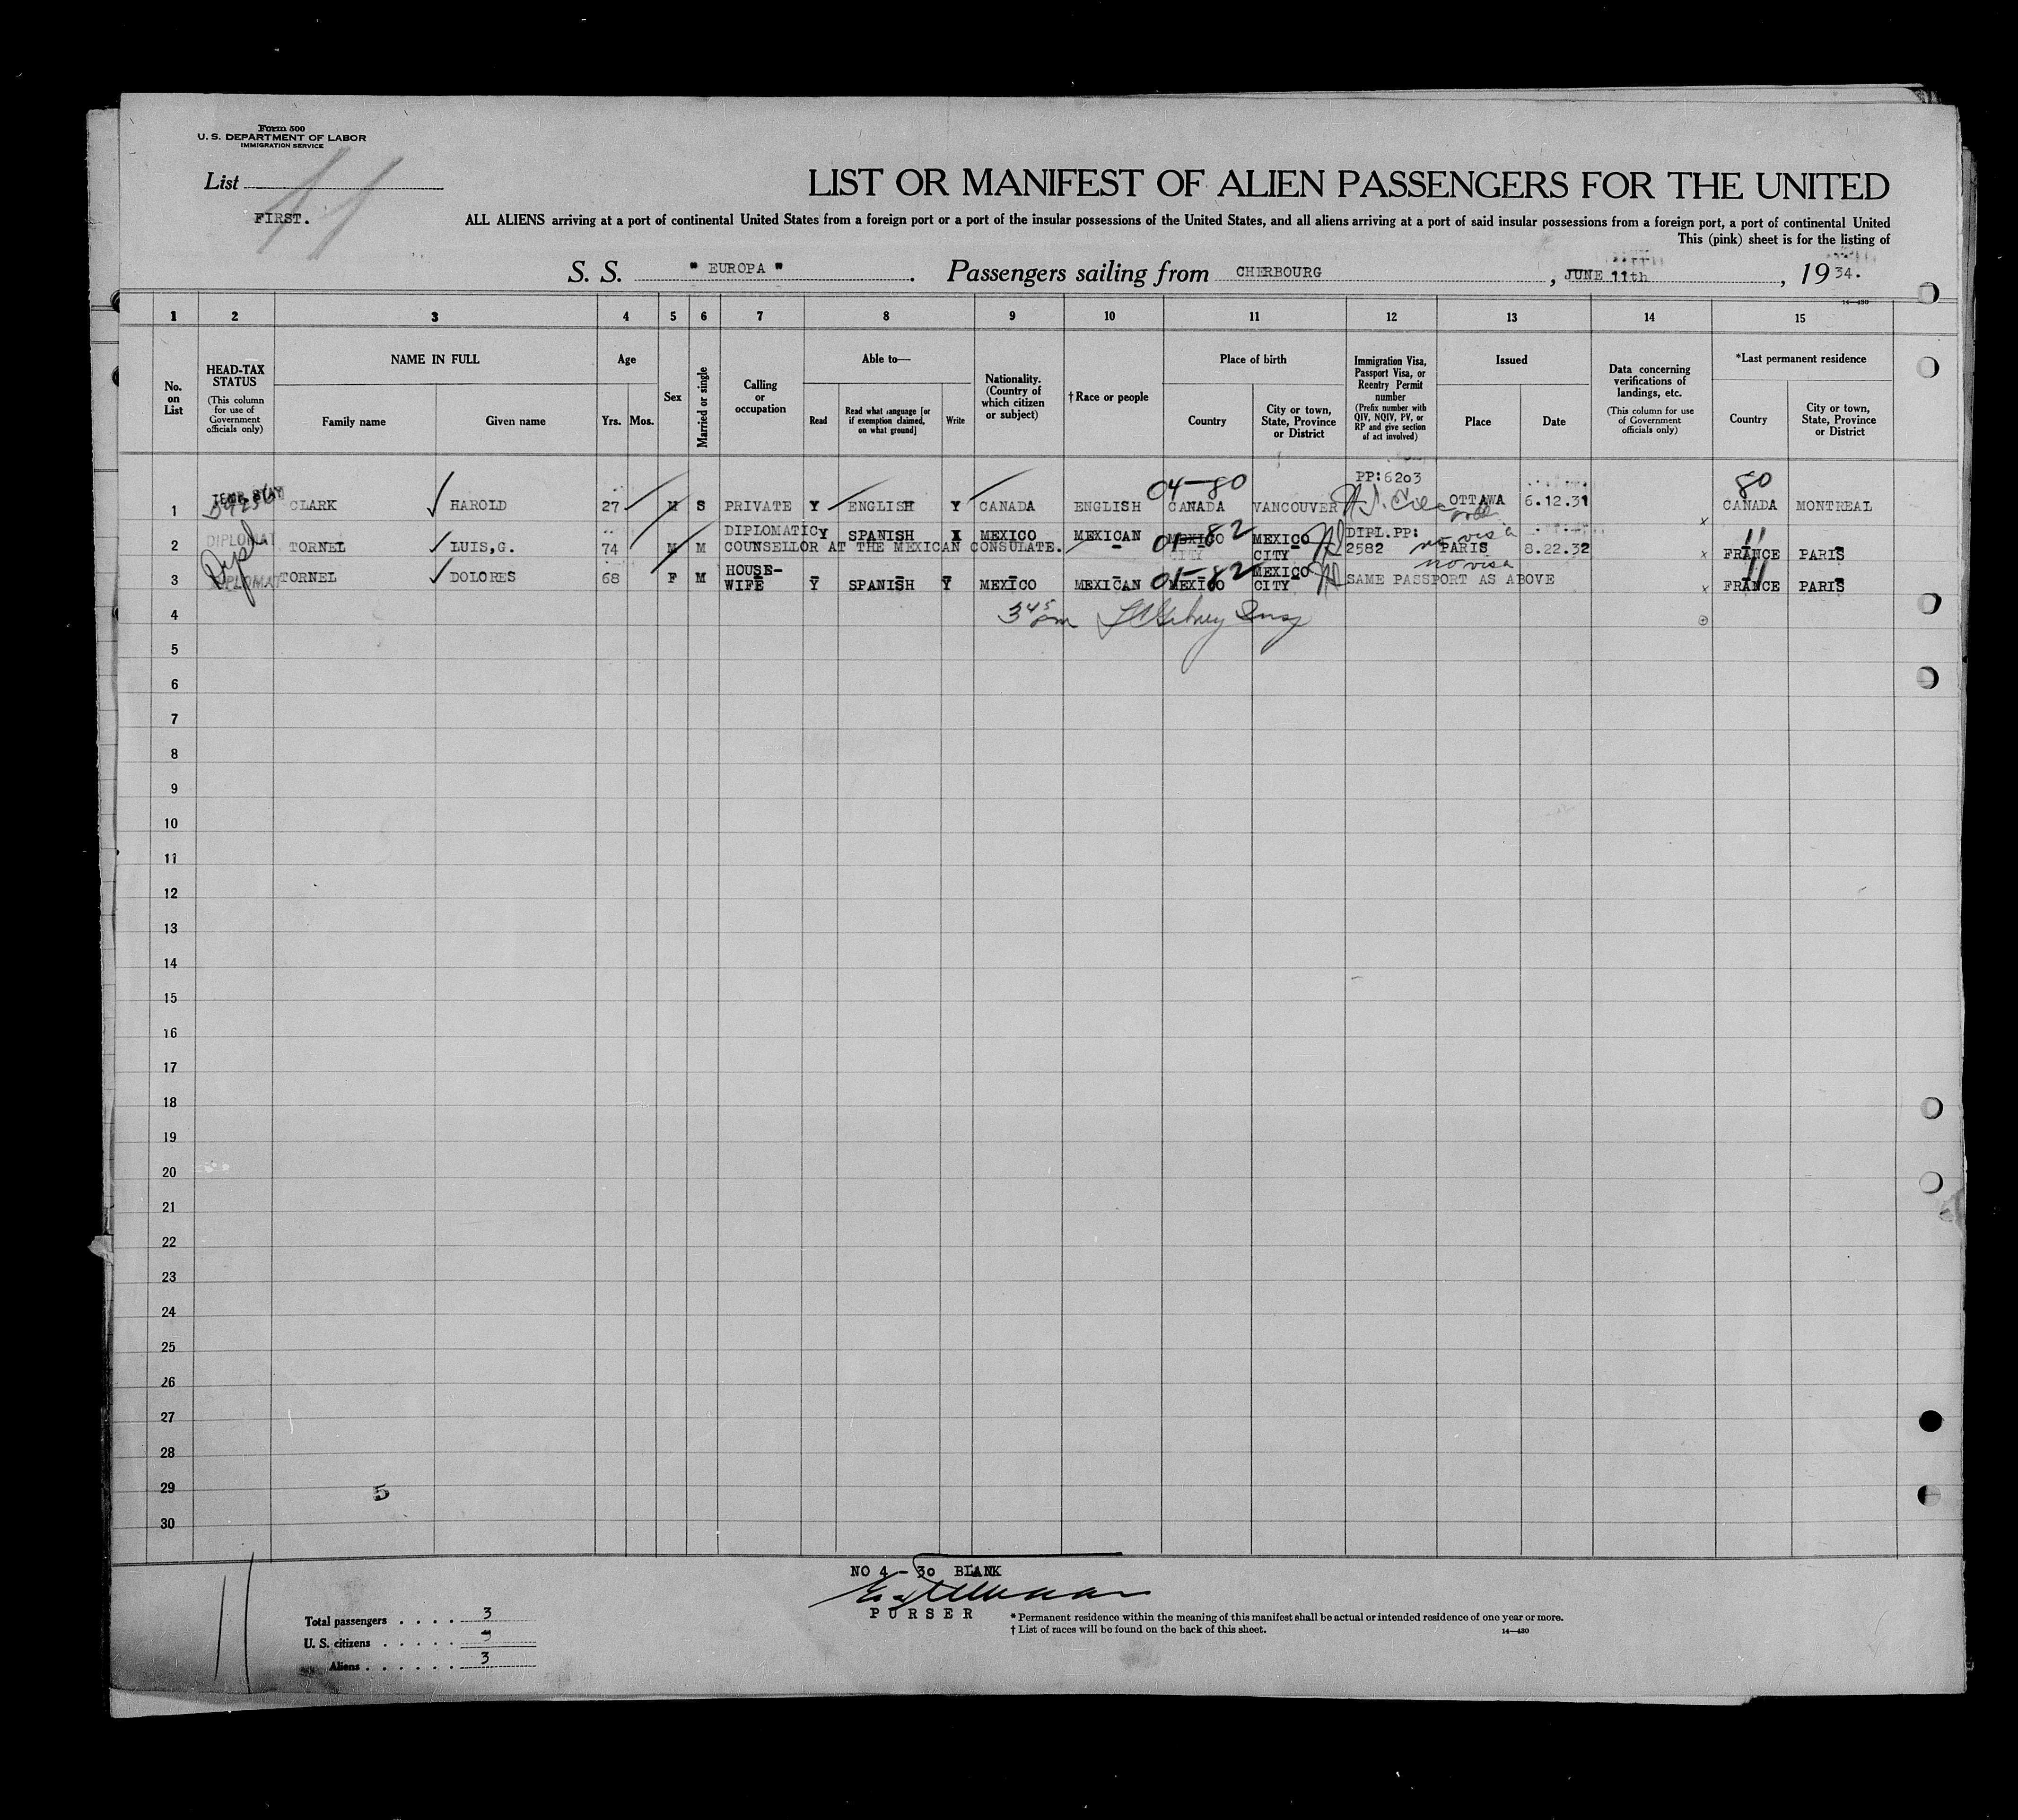 Form 500
U. S. DEPARTMENT OF LABOR
IMMIGRATION SERVICE
List
FIRST.
LIST OR MANIFEST OF ALIEN PASSENGERS FOR THE UNITED
ALL ALIENS arriving at a port of continental United States from a foreign port or a port of the insular possessions of the United States, and all aliens arriving at a port of said insular possessions from a foreign port, a port of continental United
This (pink) sheet is for the listing of
S. S. " EUROPA " . Passengers sailing from CHERBOURG , JUNE 11th , 19 34.
14—430
1 2 3 4 5 6 7 8 9 10 11 12 13 14 15
No. on List
HEAD-TAX STATUS (This column for use of Government officials only)
NAME IN FULL
Family name Given name
Age
Yrs. Mos.
Sex
Married or single
Calling or occupation
Able to—
Read
Read what language [or if exemption claimed, on what ground]
Write
Nationality. (Country of which citizen or subject)
† Race or people
Place of birth
Country
City or town, State, Province or District
Immigration Visa, Passport Visa, or Reentry Permit number (Prefix number with QIV, NQIV, PV, or RP and give section of act involved)
Issued
Place Date
Data concerning verifications of landings, etc. (This column for use of Government officials only)
*Last permanent residence
Country
City or town, State, Province or District
04-80 PP:6203 80
1 CLARK HAROLD 27 M S PRIVATE Y ENGLISH Y CANADA ENGLISH CANADA VANCOUVER OTTAWA 6.12.31 x CANADA MONTREAL
2 DIPLOMAT Dipl TORNEL LUIS,G. 74 M M DIPLOMATIC COUNSELLOR AT THE MEXICAN CONSULATE. Y SPANISH X MEXICO MEXICAN MEXICO CITY 01-82 MEXICO CITY DIPL.PP: 2582 no visa PARIS 8.22.32 x 11 FRANCE PARIS
3 DIPLOMAT TORNEL DOLORES 68 F M HOUSE-WIFE Y SPANISH Y MEXICO MEXICAN MEXICO 01-82 MEXICO CITY no visa SAME PASSPORT AS ABOVE x 11 FRANCE PARIS
4 3 45 pm
5
6
7
8
9
10
11
12
13
14
15
16
17
18
19
20
21
22
23
24
25
26
27
28
29 5
30
NO 4 - 30 BLANK
PURSER
Total passengers . . . . 3
U. S. citizens . . . . .
Aliens . . . . . . 3
11
* Permanent residence within the meaning of this manifest shall be actual or intended residence of one year or more.
† List of races will be found on the back of this sheet.
14—430